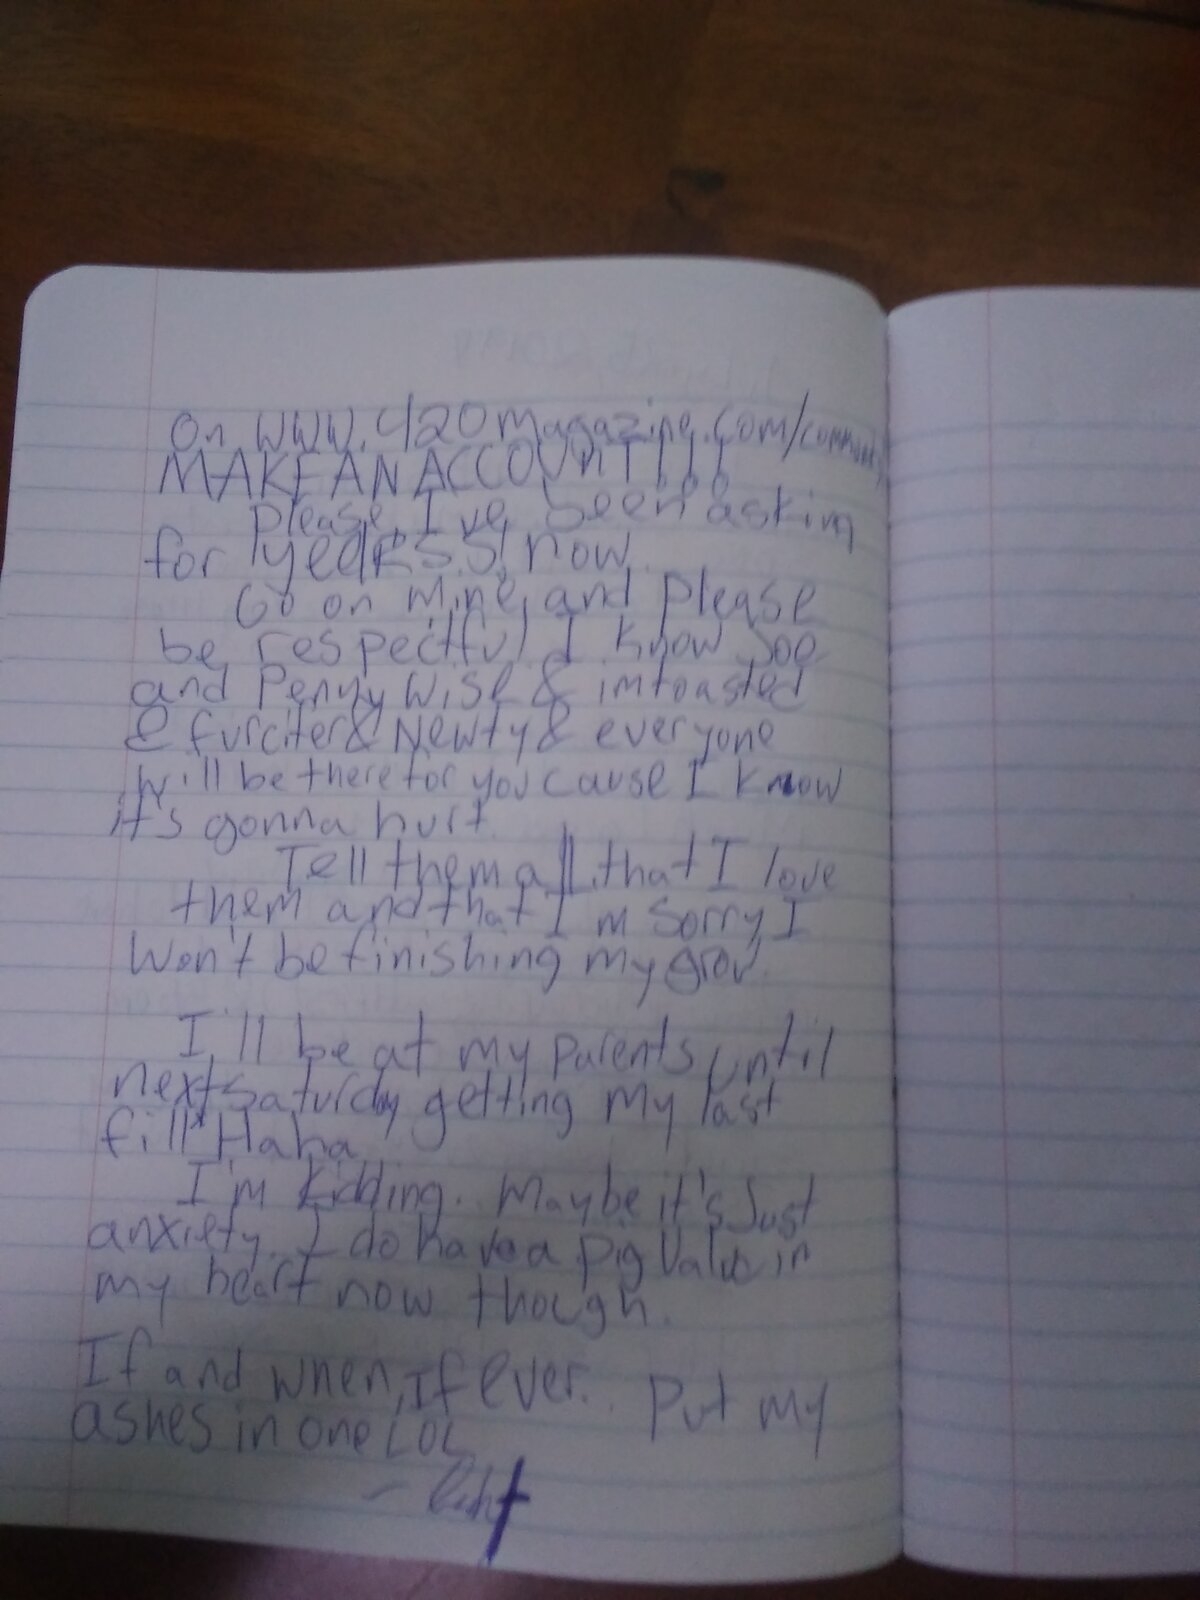 On www.420magazine.com/community
MAKE AN ACCOUNT!!!
please, I've been asking
for yeaRSS now.
Go on mine, and please
be respectful, I know Joe
and PennyWise & imtoasted
& furciter & Newty & everyone
will be there for you cause I know
it's gonna hurt.
Tell them all that I love
them and that I'm sorry I
Won't be finishing my grow.
I'll be at my parents until
next Saturday getting my last
fill* Haha
I'm kidding.. Maybe it's Just
anxiety. I do have a pig Valve in
my heart now though.
If and when, If ever.. Put my
ashes in one LOL